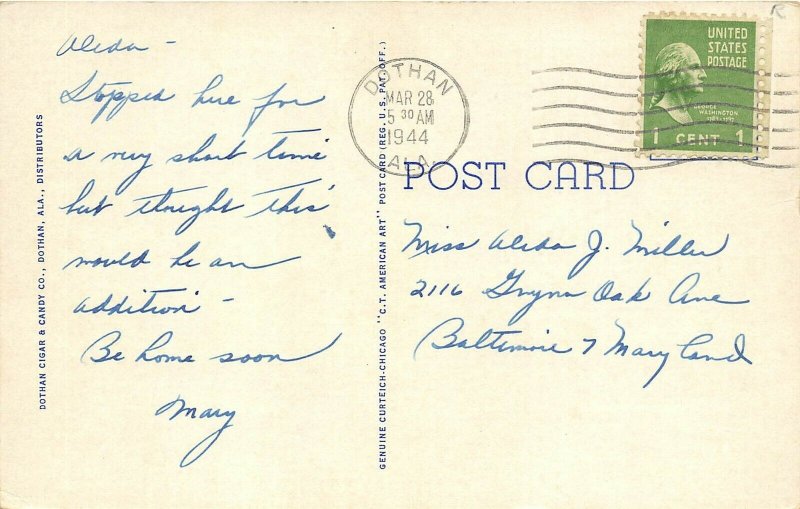 Aleda -
Stopped here for
a very short time
but thought this
would be an
addition -
Be home soon
Mary
DOTHAN CIGAR & CANDY CO., DOTHAN, ALA., DISTRIBUTORS
GENUINE CURTEICH-CHICAGO "C.T. AMERICAN ART" POST CARD (REG. U.S. PAT. OFF.)
DOTHAN
MAR 28
5 30 AM
1944
ALA.
UNITED
STATES
POSTAGE
GEORGE
WASHINGTON
1 CENT 1
R
POST CARD
Miss Aleda J. Miller
2116 Gwynn Oak Ave
Baltimore 7 Maryland